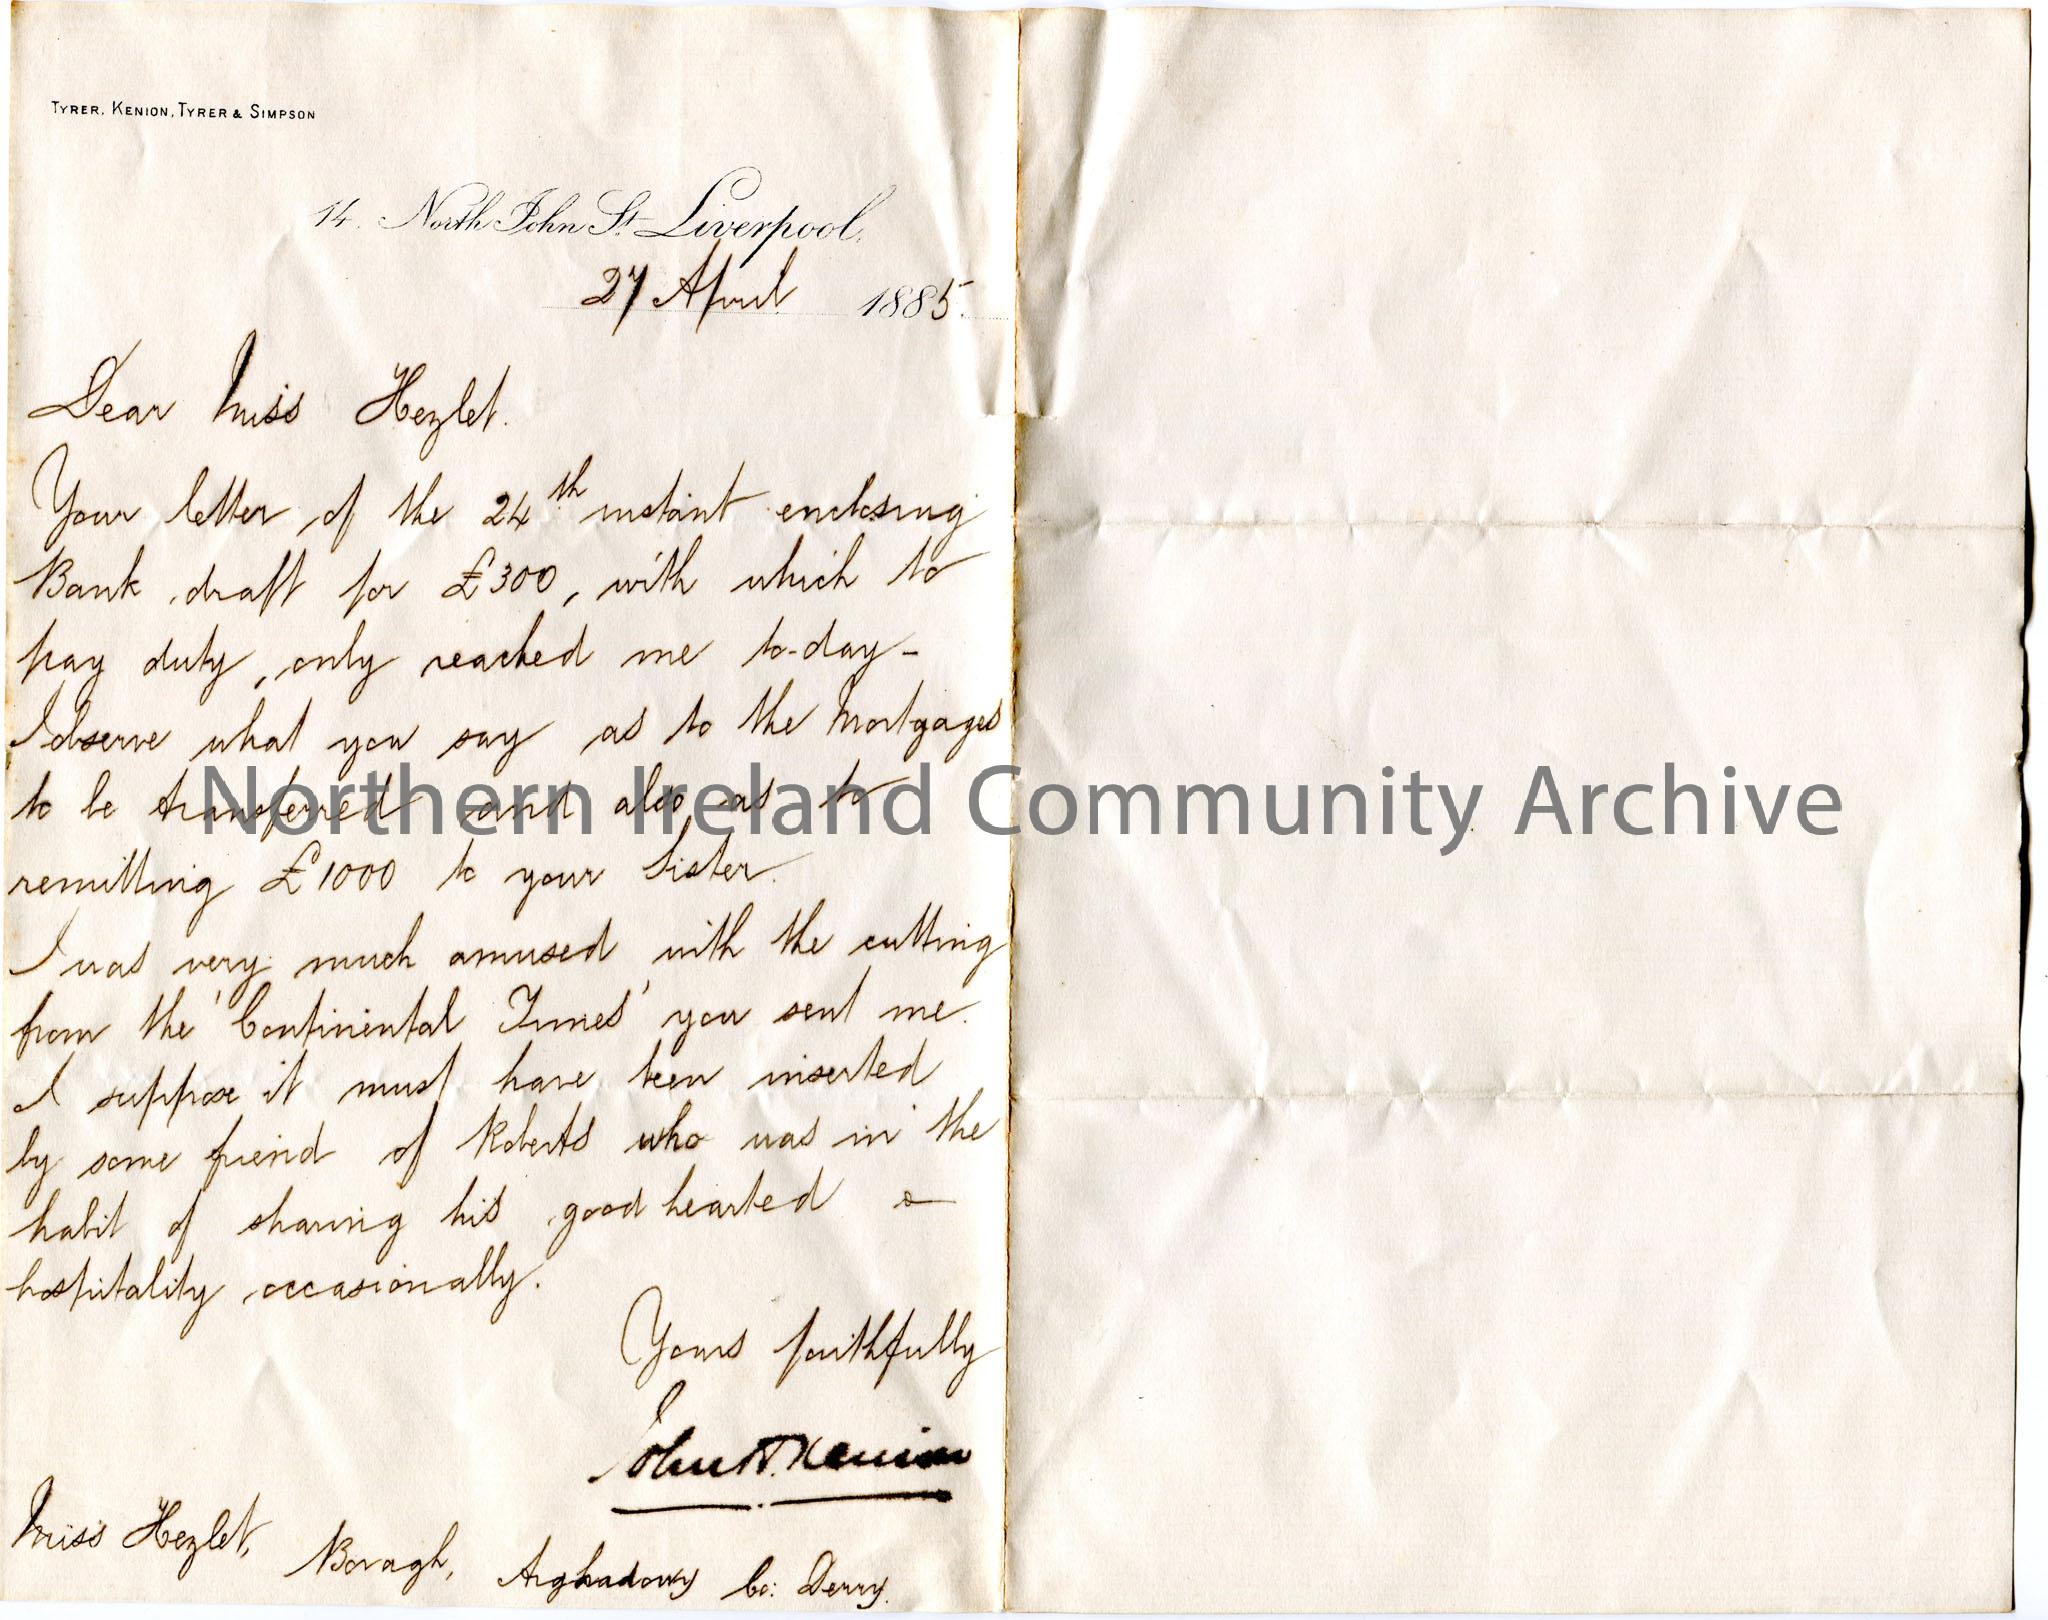 TYRER, KENION, TYRER & SIMPSON
14. North John St. Liverpool,
27 April 1885.
Dear Miss Hezlet.
Your letter of the 24th instant enclosing
Bank draft for £300, with which to
pay duty, only reached me to-day -
I observe what you say as to the Mortgages
to be transferred and also as to
Northern Ireland Community Archive
remitting £1000 to your Sister.
I was very much amused with the cutting
from the 'Continental Times' you sent me.
I suppose it must have been inserted
by some friend of Roberts who was in the
habit of sharing his good hearted &
hospitality occasionally.
Yours faithfully
John A. Kenion
Miss Hezlet, Bovagh, Arghadowy Co: Derry.